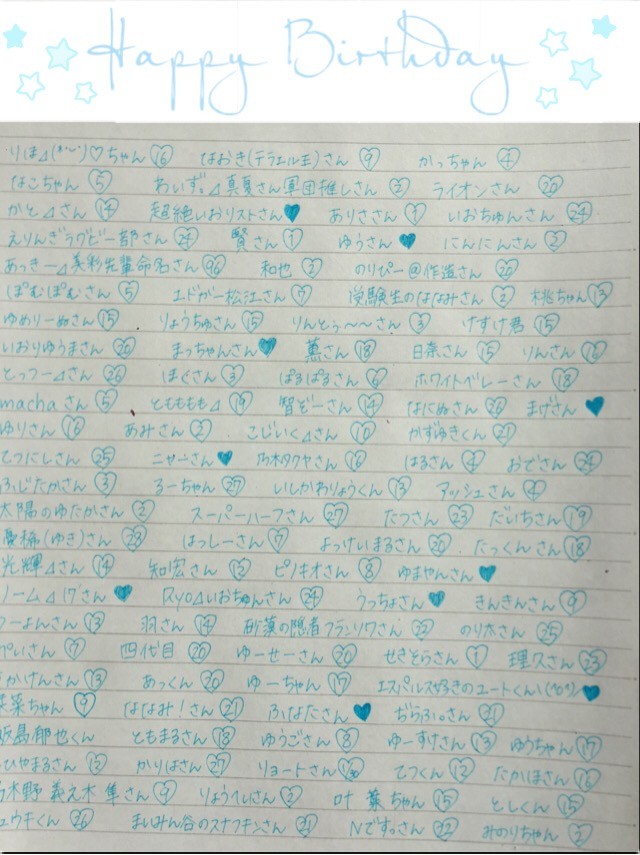 Happy Birthday
りほ⊿(*'-')♡ちゃん 16 なおき(テラエル王)さん 9 かっちゃん 4
なこちゃん 5 あいず。⊿真夏さん軍団推しさん 2 ライオンさん 20
かと⊿さん 14 超絶いおりストさん♥ ありささん 1 いおちゅんさん 24
えりんぎラグビー部さん 24 賢さん 1 ゆうさん♥ にんにんさん 2
あっきー⊿美彩先輩命名さん 和也 2 のりぴー@作造さん 20
ぽむぽむさん 5 エドガー松江さん 7 受験生のななみさん 2 桃ちゃん 13
ゆめりーぬさん 15 りょうちゅさん 15 りんとぅ〜〜さん 3 けすけ君 15
いおりゆうまさん 20 まっちゃんさん♥ 薫さん 18 日奈さん 15 りんさん 16
とっつー⊿さん 26 ほぐさん 3 ぱるぱるさん 6 ホワイトベレーさん 18
machaさん 5 とももも⊿ 19 智ぞーさん 14 なにぬさん 20 まげさん♥
ゆりさん 16 あみさん 2 こじいく⊿さん 10 かずゆきくん 21
てつにしさん 25 ニャーさん♥ 乃木タクヤさん 16 はるさん 4 おでさん 24
ふじたかさん 3 るーちゃん 27 いしかわりょうくん 13 アッシュさん 4
太陽のゆたかさん 2 スーパーハーフさん 27 たつさん 23 だいちさん 19
(ゆき)さん 23 はっしーさん 7 よっけいまるさん 20 たっくんさん 18
光輝⊿さん 14 知宏さん 12 ピノキオさん 8 ゆまやんさん♥
ノーム⊿17さん♥ Ryo⊿いおちゅんさん 24 うっちょさん♥ きんきんさん 9
ーよんさん 13 羽さん 14 砂漠の隠者フランソワさん 22 のり太さん 25
ぺいさん 7 四代目 20 ゆーせーさん 20 せきとらさん 1 理久さん 23
かげんさん 13 あっくん 20 ゆーちゃん 17 エスパルス好きのユートくん♥
菜ちゃん 9 ななみ!さん 21 ふなたさん♥ ぢらふ。さん 21
飯島郁也くん ともまるさん 18 ゆうごさん 8 ゆーすけさん 13 ゆうちゃん 17
ひやまるさん 12 かりはさん 27 リョートさん てつくん 12 たかほさん 16
木野 義之木 隼さん 9 りょうへいさん 2 叶 葉ちゃん 15 としくん 15
ュウキくん 26 まいみん谷のスナフキンさん 21 Nですっさん 22 みのりちゃん 2